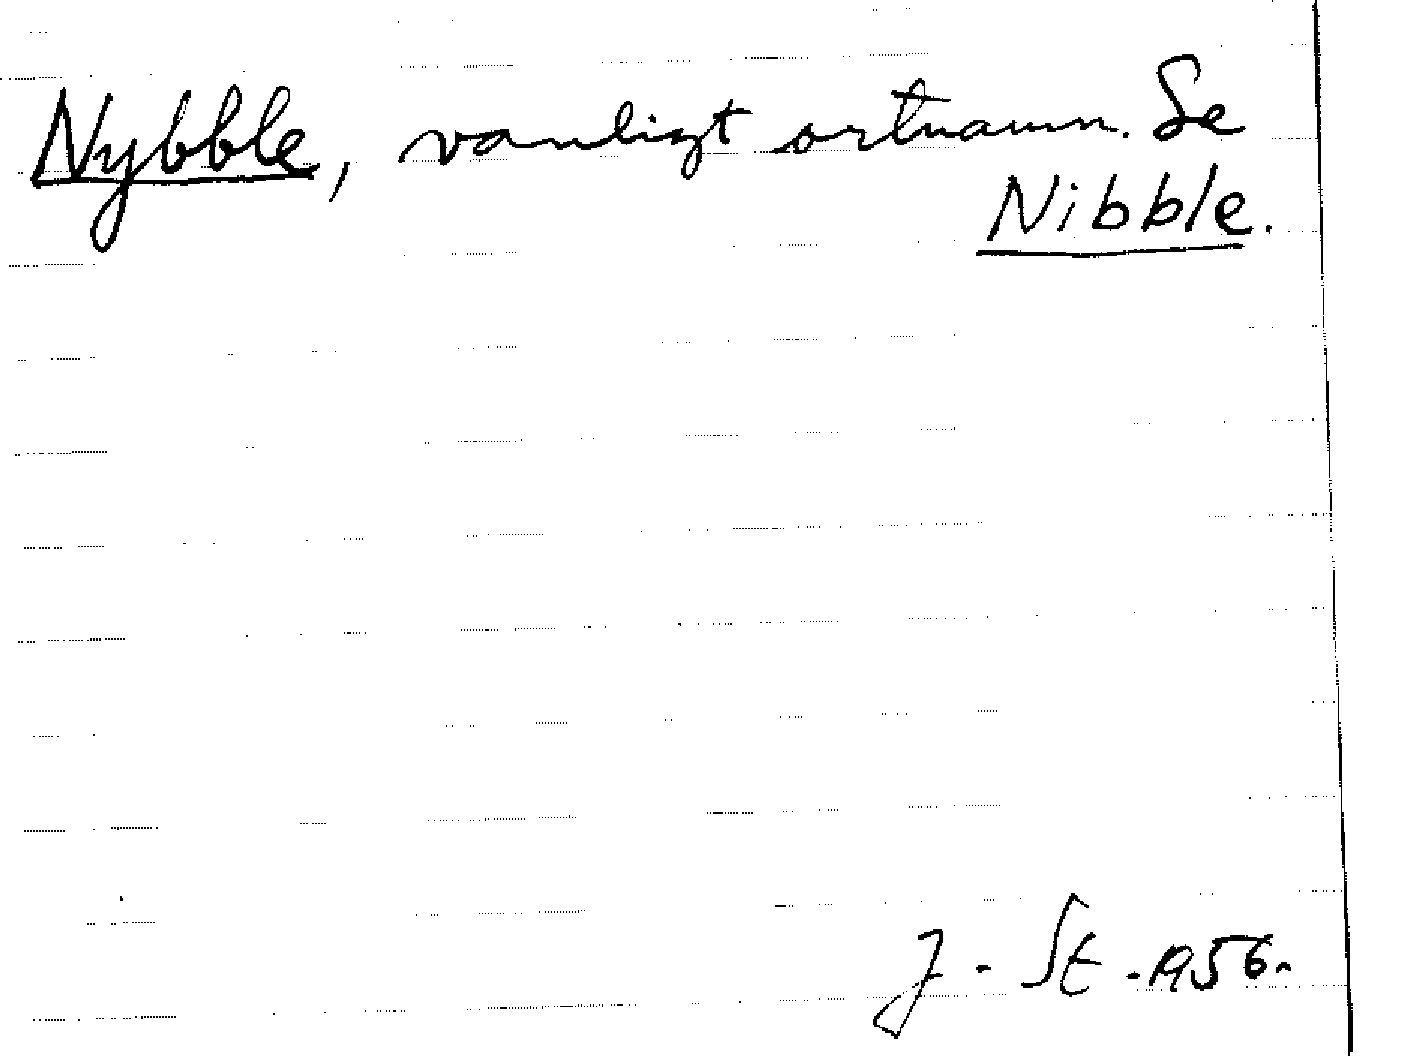 Nybble, vanligt ortnamn. Se
Nibble.
J. St. 1956.